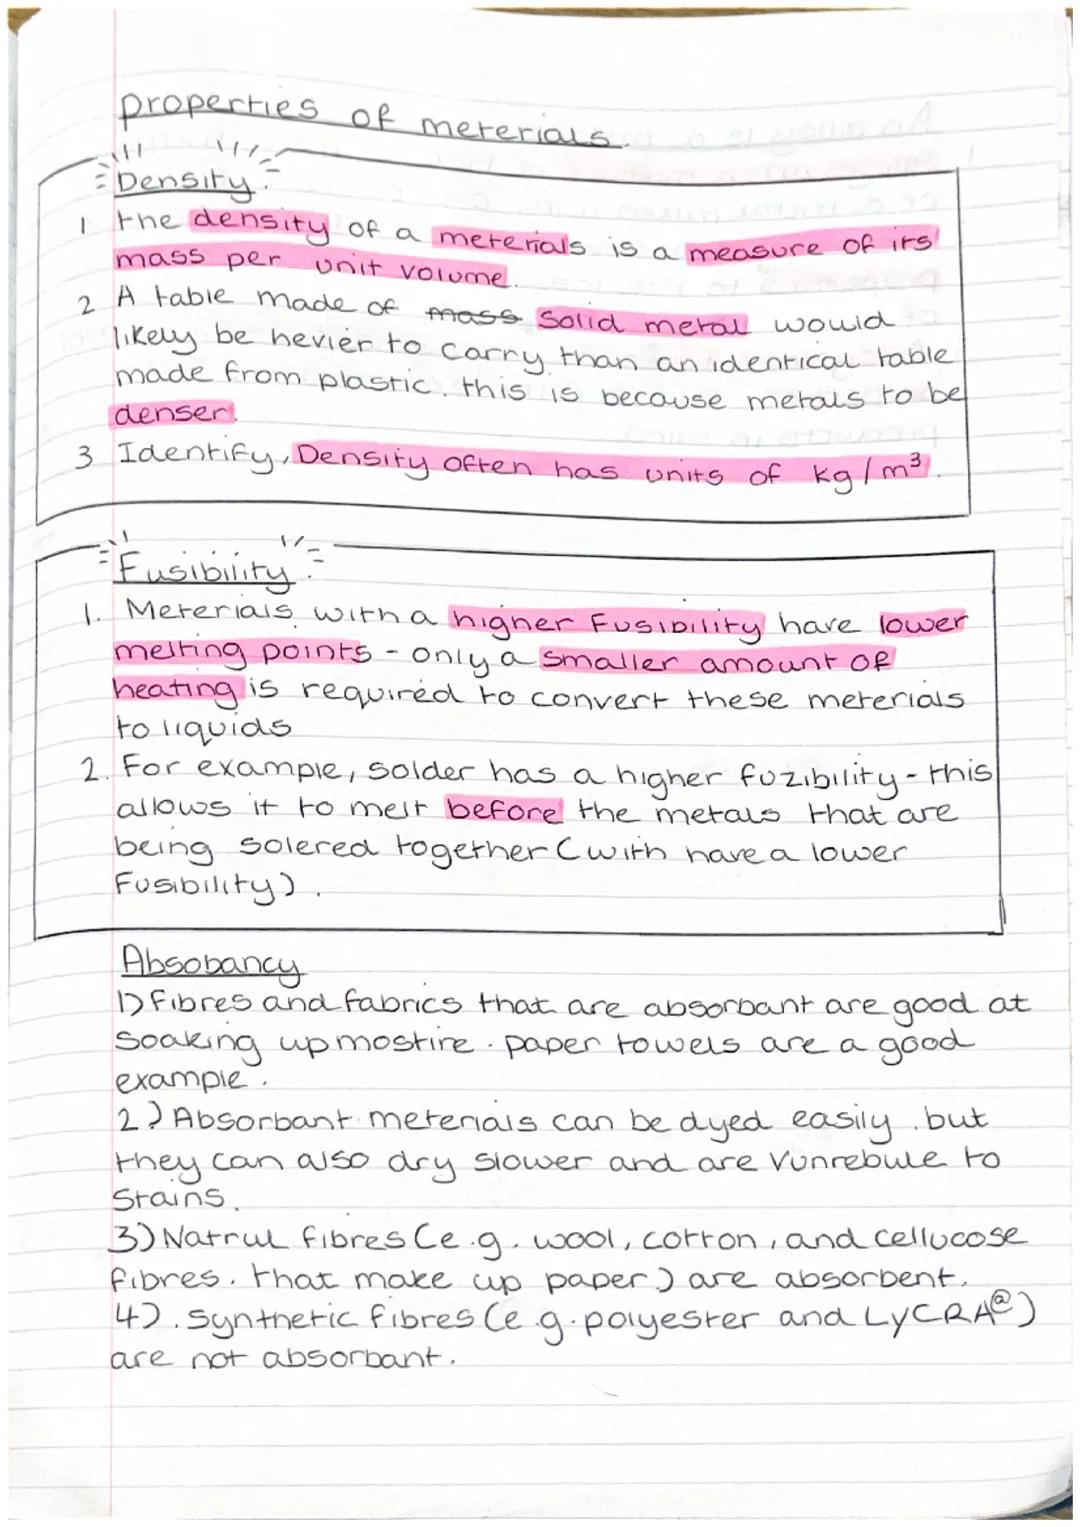 properties of meterials.
Density.
1 the density of a meterials is a measure of its
mass per unit volume.
2 A table made of mass solid metal would
likely be hevier to carry than an identical table
made from plastic. this is because metals to be
denser.
3 Identify, Density often has units of kg/m³.
Fusibility.
1. Meterials with a higher Fusibility have lower
melting points - only a smaller amount of
heating is required to convert these meterials
to liquids
2. For example, solder has a higher fuzibility - this
allows it to melt before the metals that are
being solered together (with have a lower
Fusibility).
Absobancy
1) fibres and fabrics that are absorbant are good at
soaking up mostire. paper towels are a good
example.
2) Absorbant meterials can be dyed easily. but
they can also dry slower and are vunrebule to
stains.
3) Natrul fibres (e.g. wool, cotton, and cellucose
fibres. that make up paper) are absorbent.
4). Synthetic fibres (e.g. polyester and LyCRA@)
are not absorbant.